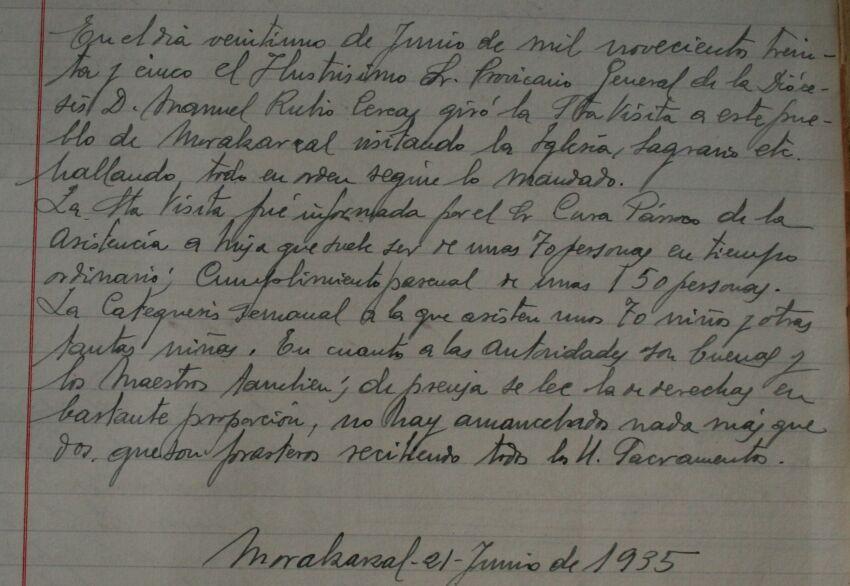 En el dia veintiuno de Junio de mil novecientos trein-
ta y cinco el Ilustrisimo Sr. Provicario General de la Dióce-
sis D. Manuel Rubio Cercas giró la Sta Visita a este pue-
blo de Moralzarzal visitando la Iglesia, Sagrario etc.
hallando todo en orden segun lo mandado.
La Sta Visita fué informada por el Sr Cura Párroco de la
asistencia a misa que suele ser de unas 70 personas en tiempo
ordinario; Cumplimiento pascual de unas 150 personas.
La Catequesis semanal a la que asisten unos 70 niños y otras
tantas niñas. En cuanto a las autoridades son buenas y
los maestros tambien; de prensa se lee la de derechas en
bastante proporción, no hay amancebados nada más que
dos, que son forasteros recibiendo todos los S. Sacramentos.
Moralzarzal-21-Junio de 1935